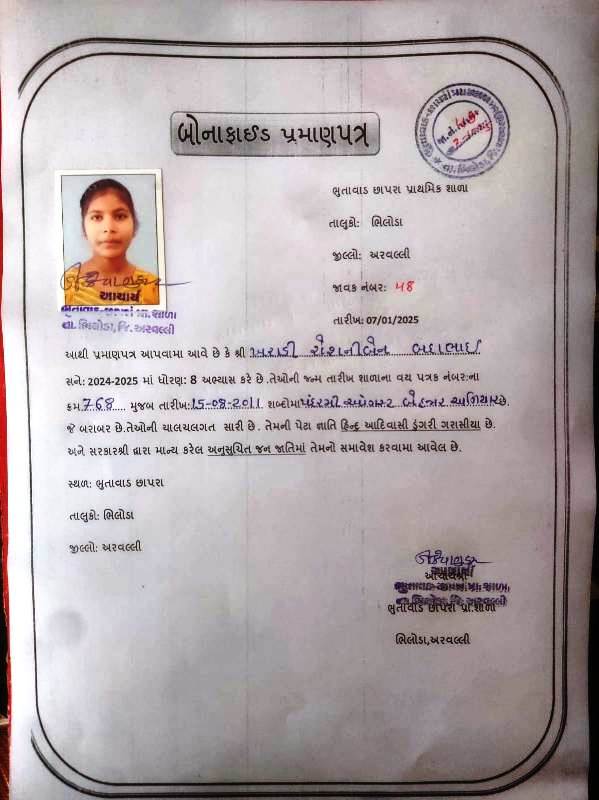 બોનાફાઈડ પ્રમાણપત્ર
ભુતાવાડ છાપરા પ્રાથમિક શાળા
તાલુકો: ભિલોડા
જીલ્લો: અરવલ્લી
જાવક નંબર: 48
તારીખ: 07/01/2025
આચાર્ય
ભુતાવાડ-છાપરા પ્રા.શાળા
તા. ભિલોડા, જિ. અરવલ્લી
આથી પ્રમાણપત્ર આપવામા આવે છે કે શ્રી ખરાડી રોશનીબેન બદાભાઈ
સને: 2024-2025 માં ધોરણ: 8 અભ્યાસ કરે છે .તેઓની જન્મ તારીખ શાળાના વય પત્રક નંબર:ના
ક્રમ 768 મુજબ તારીખ: 15-08-2011 શબ્દોમા પંદરમી ઓગસ્ટ બેહજાર અગિયાર છે.
જે બરાબર છે.તેઓની ચાલચલગત સારી છે . તેમની પેટા જ્ઞાતિ હિન્દુ આદિવાસી ડુંગરી ગરાસીયા છે.
અને સરકારશ્રી દ્વારા માન્ય કરેલ અનુસુચિત જન જાતિમાં તેમનો સમાવેશ કરવામા આવેલ છે.
સ્થળ: ભુતાવાડ છાપરા
તાલુકો: ભિલોડા
જીલ્લો: અરવલ્લી
આચાર્યશ્રી
ભુતાવાડ છાપરા પ્રા.શાળા
ભિલોડા,અરવલ્લી